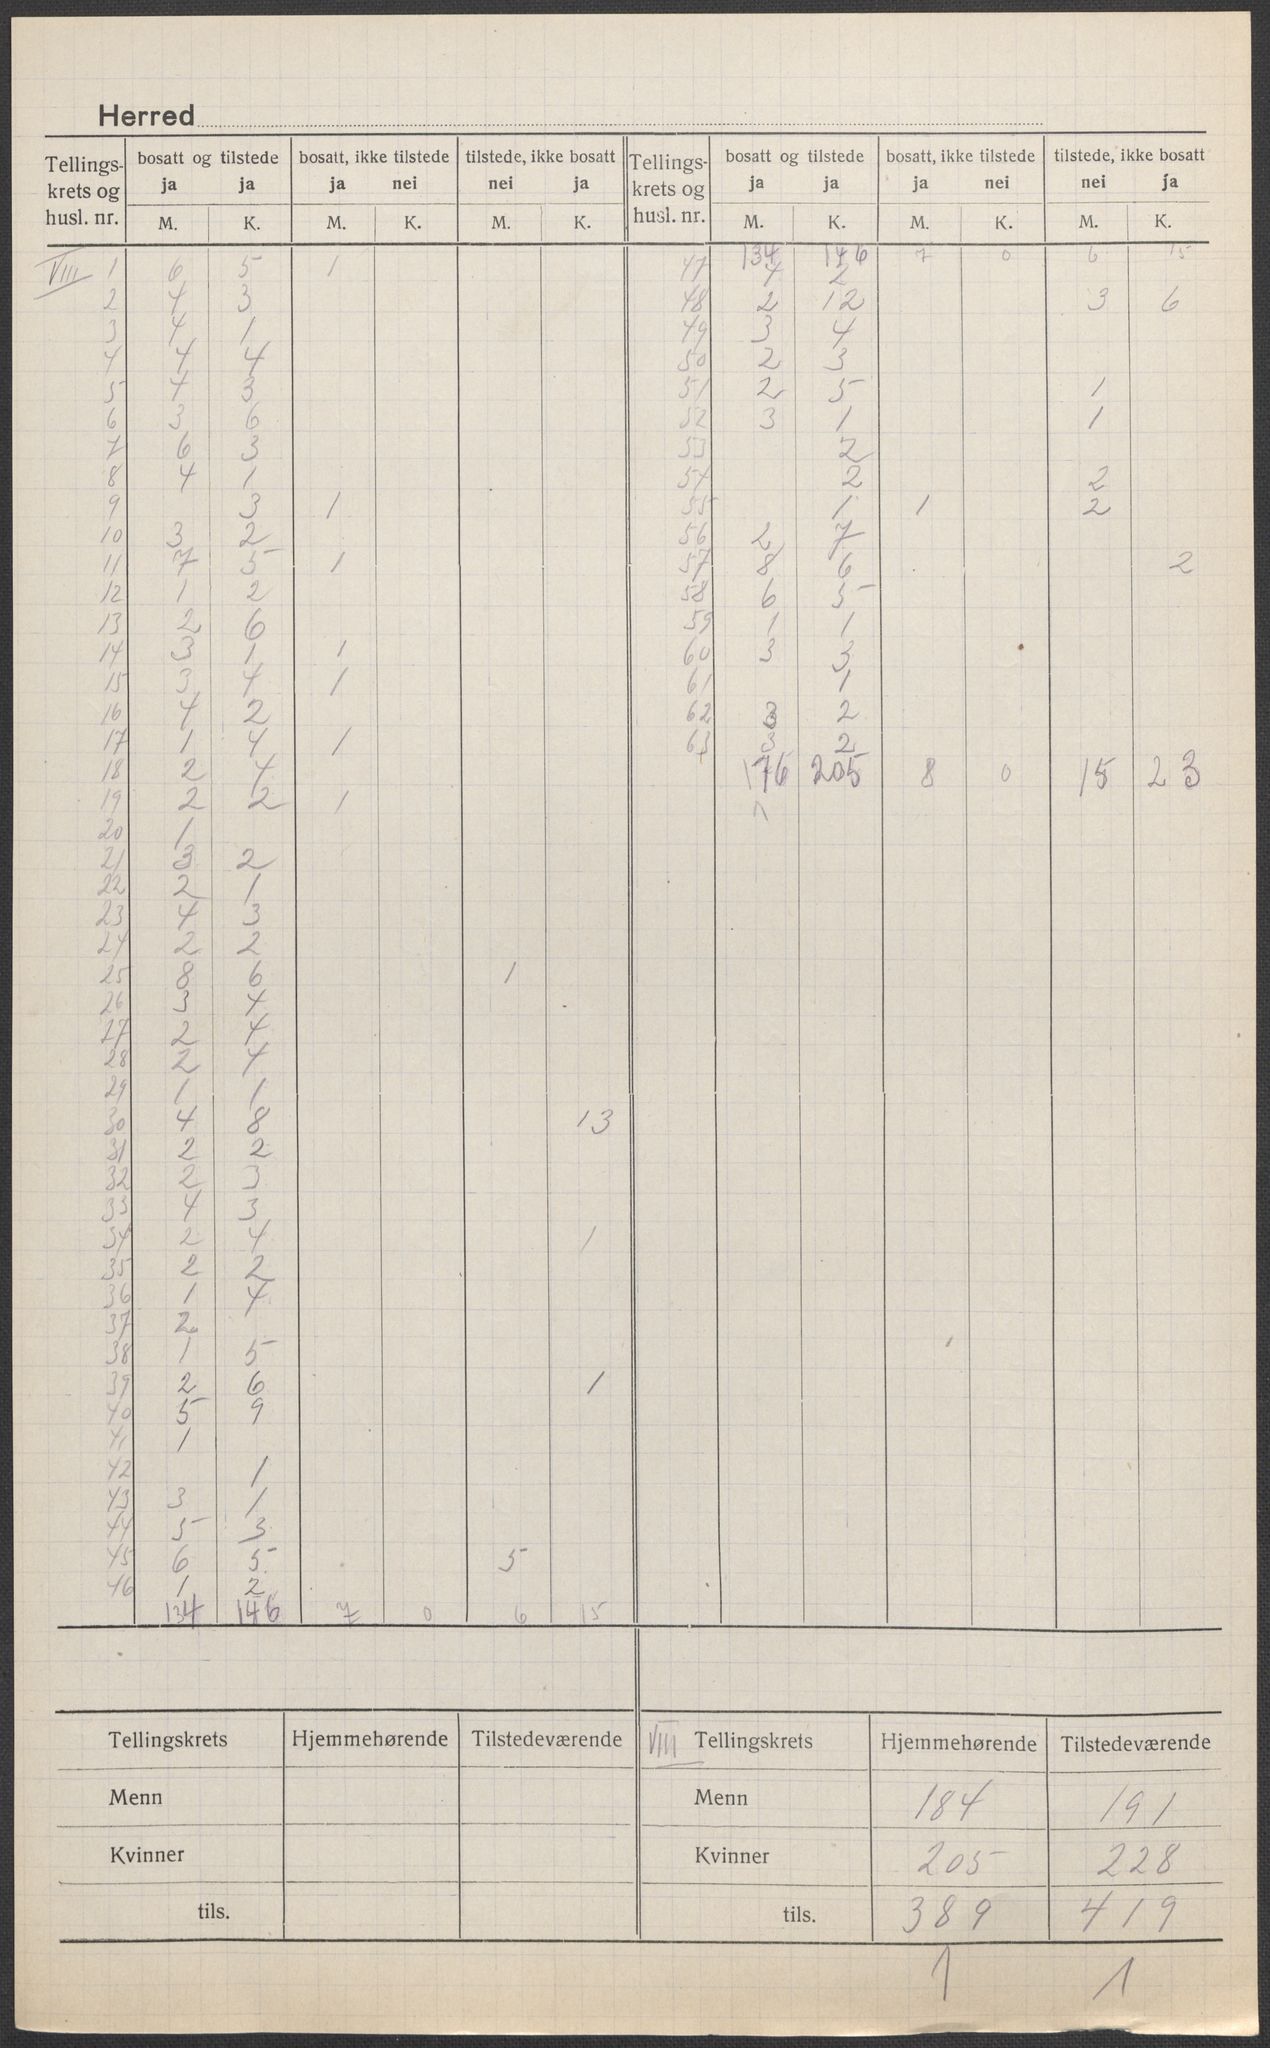 Herred
Tellings-krets og husl. nr. | bosatt og tilstede ja ja M. K. | bosatt, ikke tilstede ja nei M. K. | tilstede, ikke bosatt nei ja M. K. | Tellings-krets og husl. nr. | bosatt og tilstede ja ja M. K. | bosatt, ikke tilstede ja nei M. K. | tilstede, ikke bosatt nei ja M. K.
VIII 1 6 5 1
2 4 3
3 4 1
4 4 4
5 4 3
6 3 6
7 6 3
8 4 1
9 3 1
10 3 2
11 7 5 1
12 1 2
13 2 6
14 3 1 1
15 3 4 1
16 4 2
17 1 4 1
18 2 4
19 2 2 1
20 1
21 3 2
22 2 1
23 4 3
24 2 2
25 8 6 1
26 3 4
27 2 4
28 2 4
29 1 1
30 4 8 13
31 2 2
32 2 3
33 4 3
34 2 4 1
35 2 2
36 1 4
37 2
38 1 5
39 2 6 1
40 5 9
41 1
42 1
43 3 1
44 5 3
45 6 5 5
46 1 2
134 146 7 0 6 15
134 146 7 0 6 15
47 4 2
48 2 12 3 6
49 3 4
50 2 3
51 2 5 1
52 3 1 1
53 2
54 2 2
55 1 1 2
56 2 7
57 8 6 2
58 6 5
59 1 1
60 3 3
61 1
62 3 2
63 3 2
176 205 8 0 15 23
1
Tellingskrets Hjemmehørende Tilstedeværende
Menn
Kvinner
tils.
VIII Tellingskrets Hjemmehørende Tilstedeværende
Menn 184 191
Kvinner 205 228
tils. 389 419
1 1